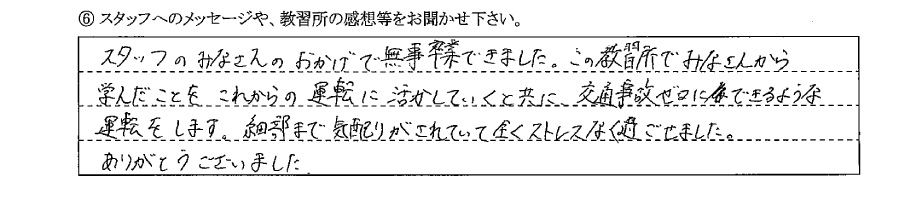 ⑥ スタッフへのメッセージや、教習所の感想等をお聞かせ下さい。
スタッフのみなさんのおかげで無事卒業できました。この教習所でみなさんから
学んだことをこれからの運転に活かしていくと共に、交通事故ゼロにできるような
運転をします。細部まで気配りがされていて全くストレスなく過ごせました。
ありがとうございました